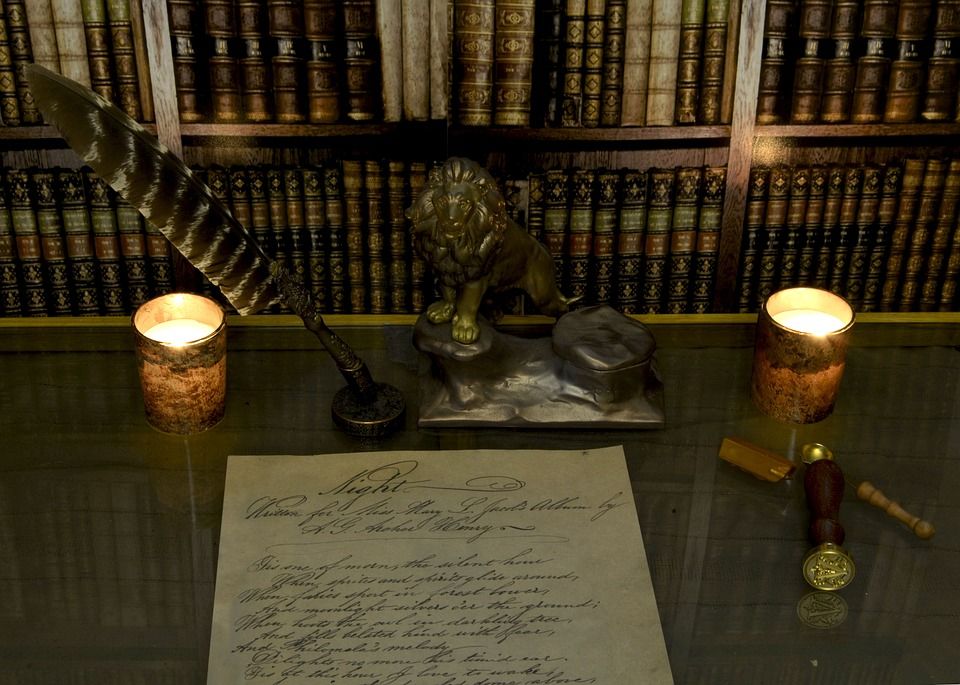 Night
Written for Miss Mary L. Jacob's Album by
A. G. Henry
'Tis one of morn, the silent hour
When sprites and spirits glide around,
When fairies sport in forest bowers,
And moonlight silvers o'er the ground;
When hoots the owl in darkling tree,
And fills belated hind with fear,
And Philomela's melody
Delights no more his timid ear.
'Tis at this hour I love to wake
above,